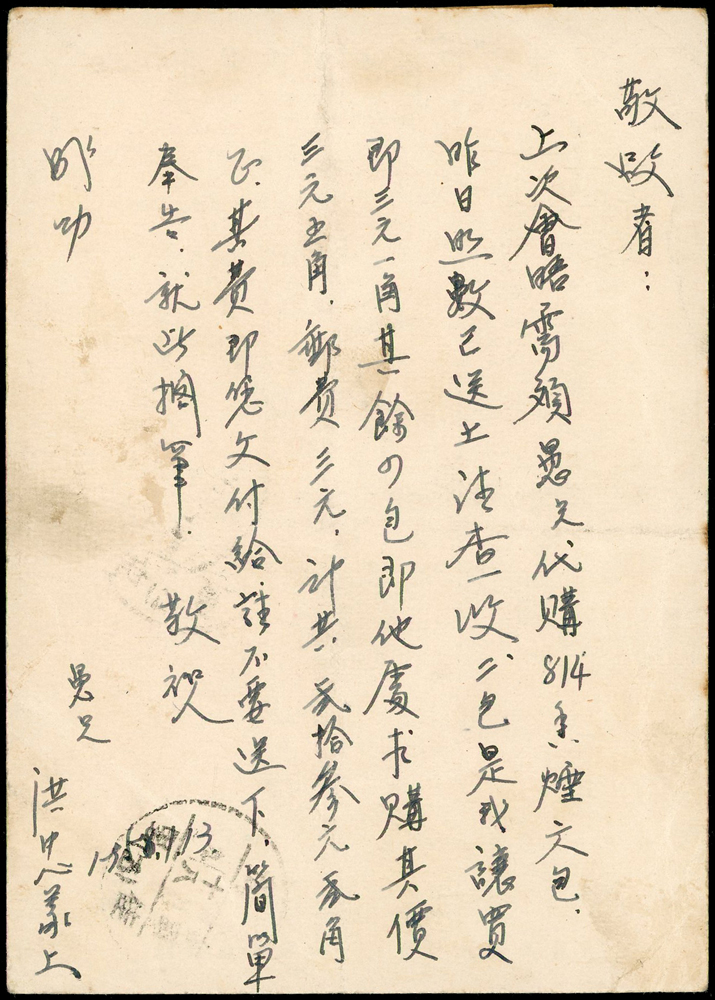 敬啟者：
上次會晤需煩愚兄代購814香煙六包.
昨日照數已送上請查收二包是我讓買
即三元一角其餘四包即他處求購其價
三元五角.郵費三元.計共貳拾參元貳角
正.其費即您交付給註不要送下.簡單
奉告.就此擱筆.敬祝
成功
愚兄
洪忠義上